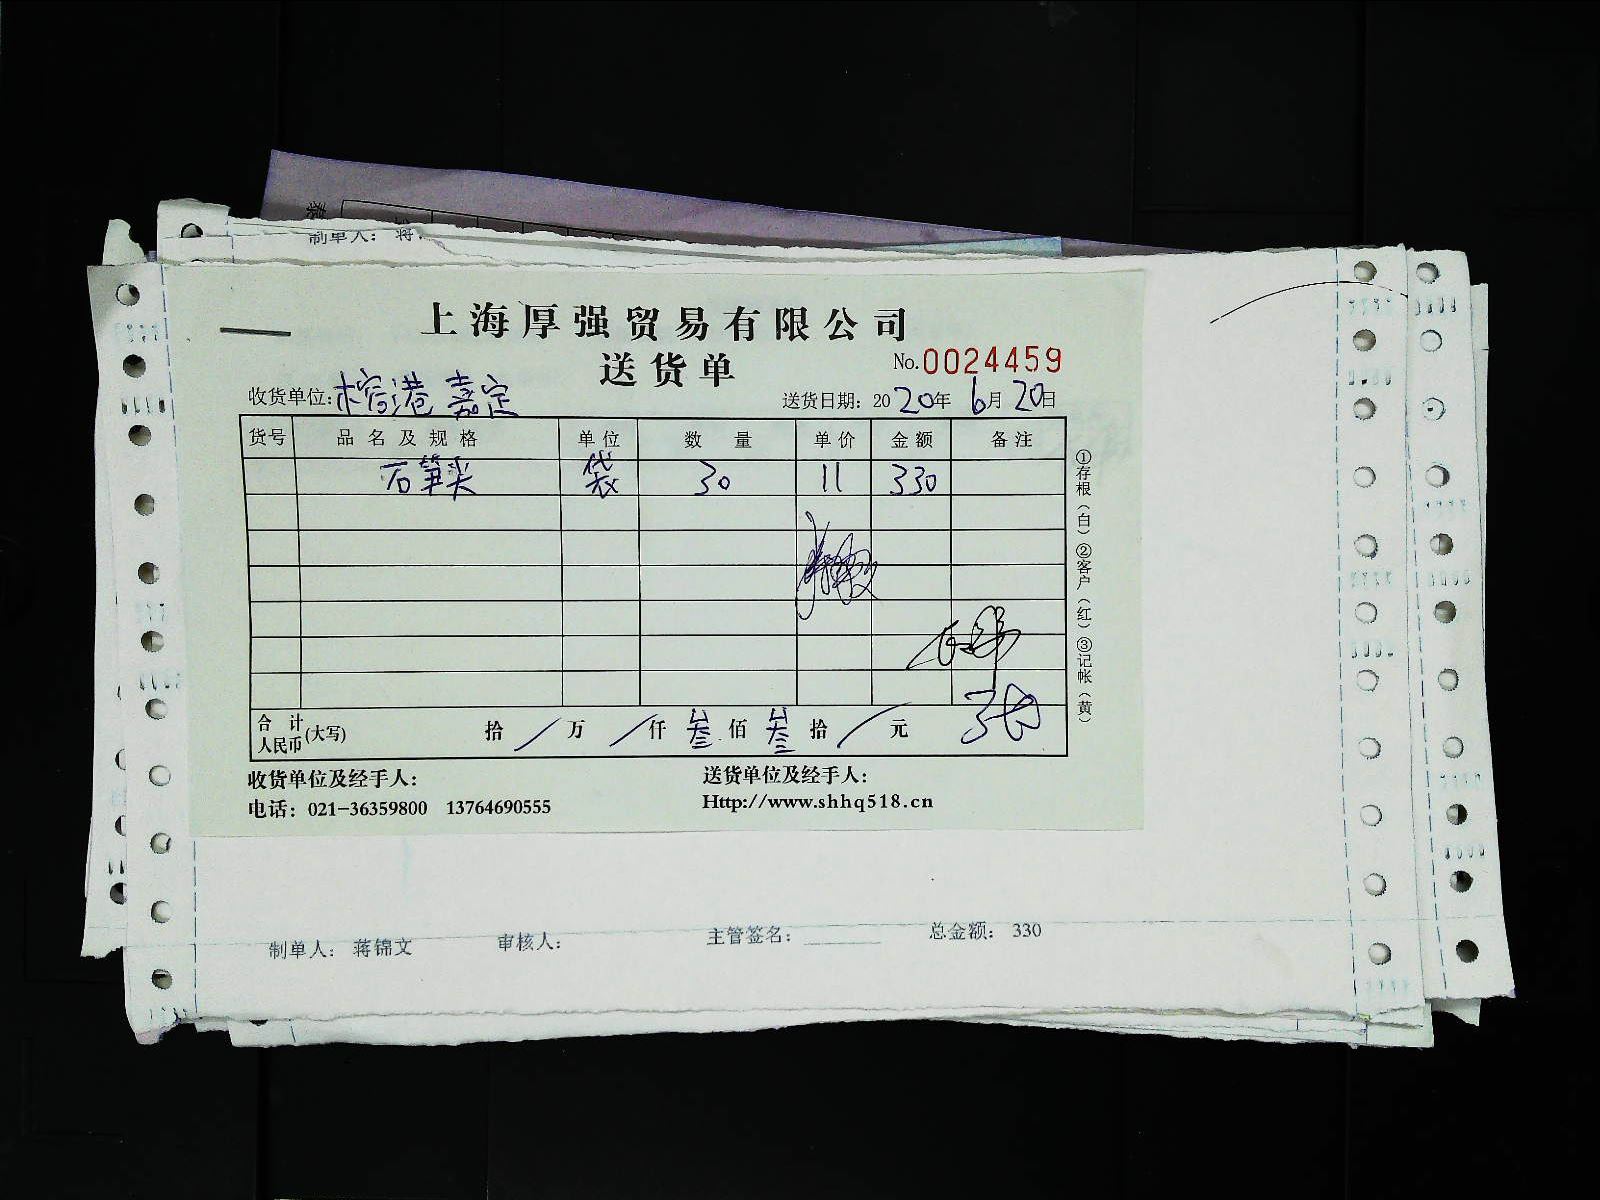 制单人：蒋
上海厚强贸易有限公司
送货单
No.0024459
收货单位：榕港 嘉定
送货日期：2020年 6月 20日
货号 品名及规格 单位 数量 单价 金额 备注
石笋尖 袋 30 11 330
①存根（白）②客户（红）③记帐（黄）
合计人民币(大写) 拾 / 万 / 仟 叁 佰 叁 拾 / 元
收货单位及经手人：
送货单位及经手人：
电话：021-36359800 13764690555
Http://www.shhq518.cn
制单人： 蒋锦文 审核人： 主管签名： 总金额： 330